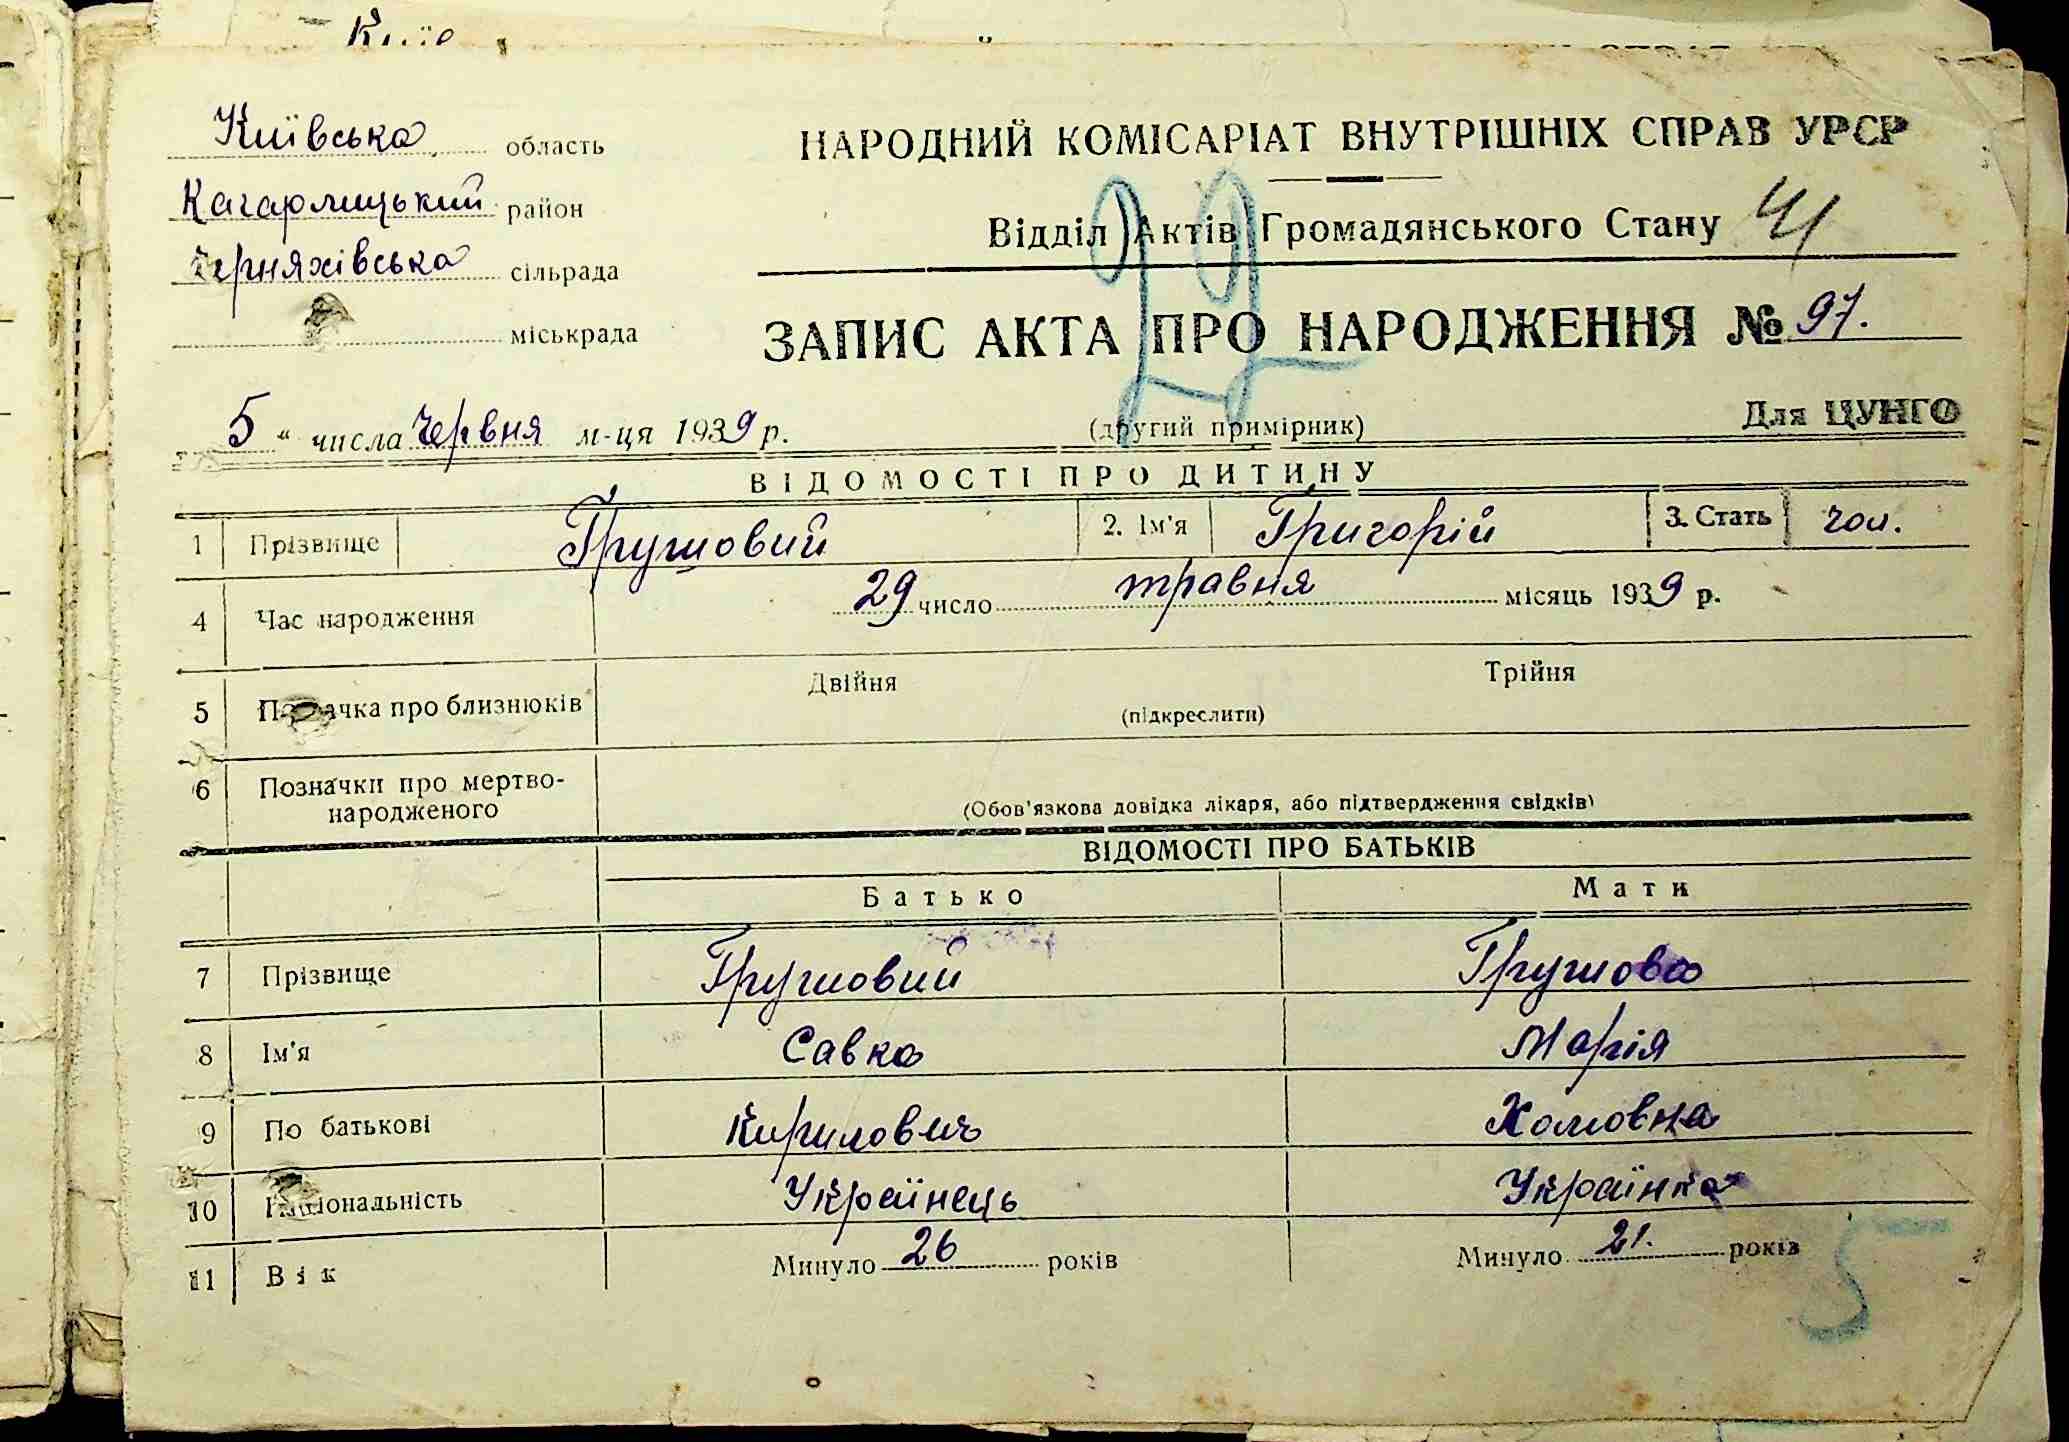 Київська область
Кагарлицький район
Черняхівська сільрада
міськрада
НАРОДНИЙ КОМІСАРІАТ ВНУТРІШНІХ СПРАВ УРСР
Відділ Актів Громадянського Стану
ЗАПИС АКТА ПРО НАРОДЖЕННЯ № 97.
5 " числа Червня м-ця 1939 р.
(другий примірник)
Для ЦУНГО
ВІДОМОСТІ ПРО ДИТИНУ
1 Прізвище Грушовий 2. Ім'я Григорій 3. Стать чол.
4 Час народження 29 число травня місяць 1939 р.
5 Позначка про близнюків Двійня Трійня
(підкреслити)
6 Позначки про мертво-
народженого
(Обов'язкова довідка лікаря, або підтвердження свідків)
ВІДОМОСТІ ПРО БАТЬКІВ
Батько Мати
7 Прізвище Грушовий Грушова
8 Ім'я Савка Марія
9 По батькові Кирилович Хомовна
10 Національність Українець Українка
11 Вік Минуло 26 років Минуло 21. років
5